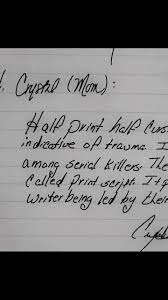 Crystal (Mom):
Half print half
indicative of trauma. I
among serial killers. The
called print script. Its
writer being led by their